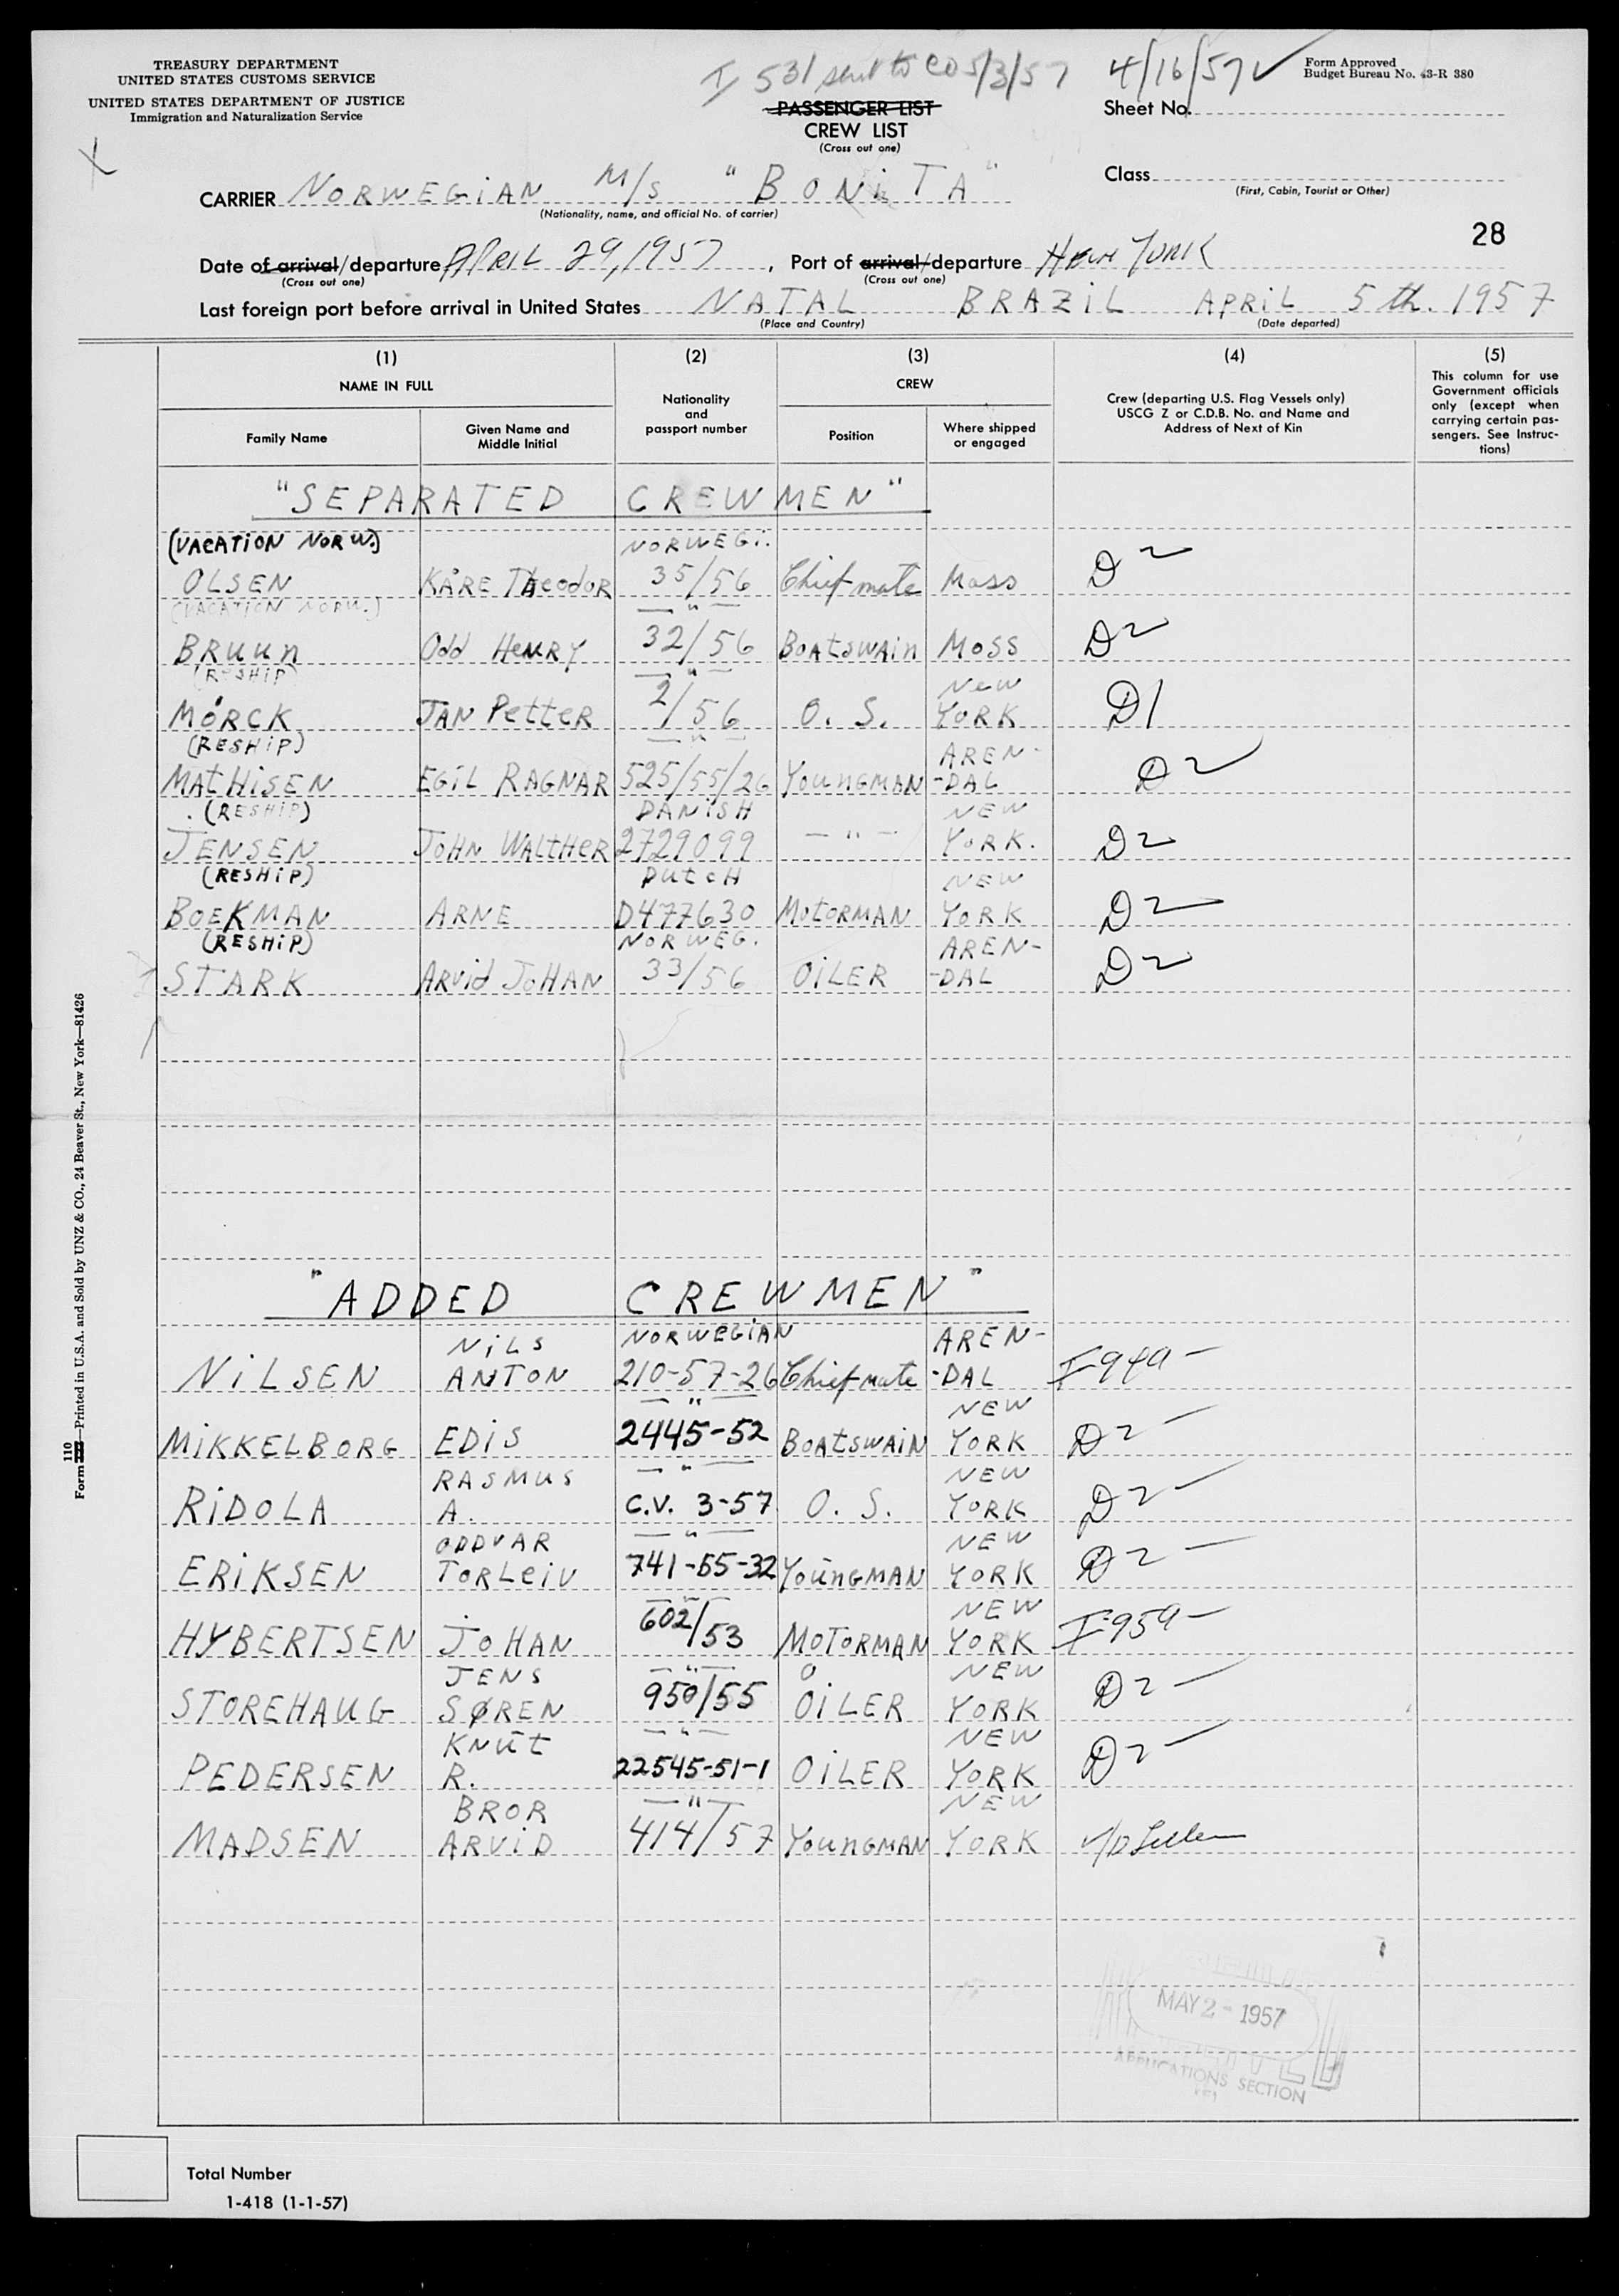 TREASURY DEPARTMENT
UNITED STATES CUSTOMS SERVICE
UNITED STATES DEPARTMENT OF JUSTICE
Immigration and Naturalization Service
I 531 sent to CO 5/3/57
4/16/57
Form Approved
Budget Bureau No. 43-R 380
PASSENGER LIST
CREW LIST
(Cross out one)
Sheet No.
X
CARRIER NORWEGIAN M/S "BONITA"
(Nationality, name, and official No. of carrier)
Class
(First, Cabin, Tourist or Other)
28
Date of arrival/departure APRIL 29, 1957, Port of arrival/departure NEW YORK
(Cross out one) (Cross out one)
Last foreign port before arrival in United States NATAL BRAZIL APRIL 5th. 1957
(Place and Country) (Date departed)
(1) (2) (3) (4) (5)
NAME IN FULL
Family Name
Given Name and Middle Initial
Nationality and passport number
CREW
Position
Where shipped or engaged
Crew (departing U.S. Flag Vessels only)
USCG Z or C.D.B. No. and Name and
Address of Next of Kin
This column for use
Government officials
only (except when
carrying certain pas-
sengers. See Instruc-
tions)
"SEPARATED CREWMEN"
(VACATION NORW.) NORWEGI.
OLSEN KÅRE THeodoR 35/56 Chief mate Moss D2
(VACATION NORW.) — " —
BRuun Odd HeNRY 32/56 BOAtSWAin MOSS D2
(RESHIP) — " — New
MÖRCK JAN PetteR 2/56 O. S. YORK D1
(RESHIP) — " — AREN-
MAtHiSEN EGiL RAGNAR 525/55/26 YOUnGMAN -DAL D2
(RESHIP) DANiSH NEW
JENSEN JoHN WALtHeR 2729099 — " — YORK. D2
(RESHiP) DUtcH NEW
BOEKMAN ARNE D477630 MOtORMAN YORK D2
(RESHiP) NORWEG. AREN-
STARK ARvid JoHAN 33/56 OiLER -DAL D2
"ADDED CREWMEN"
NiLS NORWeGiAN AREN-
NiLSEN ANTON 210-57-26 Chief mate -DAL
— " — NEW
MiKKELBORG EDiS 2445-52 BOAtSWAiN YORK D2 —
RASMUS — " — NEW
RiDOLA A. C.V. 3-57 O. S. YORK D2 —
ODDVAR — " — NEW
ERiKSEN TORLeiv 741-55-32 YOUnGMAN YORK D2 —
— " — NEW
HYBERTSEN JOHAN 602/53 MOTORMAN YORK I-95a —
JENS — " — NEW
STOREHAUG SØREN 950/55 OiLER YORK D2 —
KNUt — " — NEW
PEDERSEN R. 22545-51-1 OiLER YORK D2 —
BROR — " — NEW
MADSEN ARViD 414/57 YOUnGMAN YORK
MAY 2 - 1957
APPLICATIONS SECTION
110
Form —Printed in U.S.A. and Sold by UNZ & CO., 24 Beaver St., New York—81426
Total Number
1-418 (1-1-57)